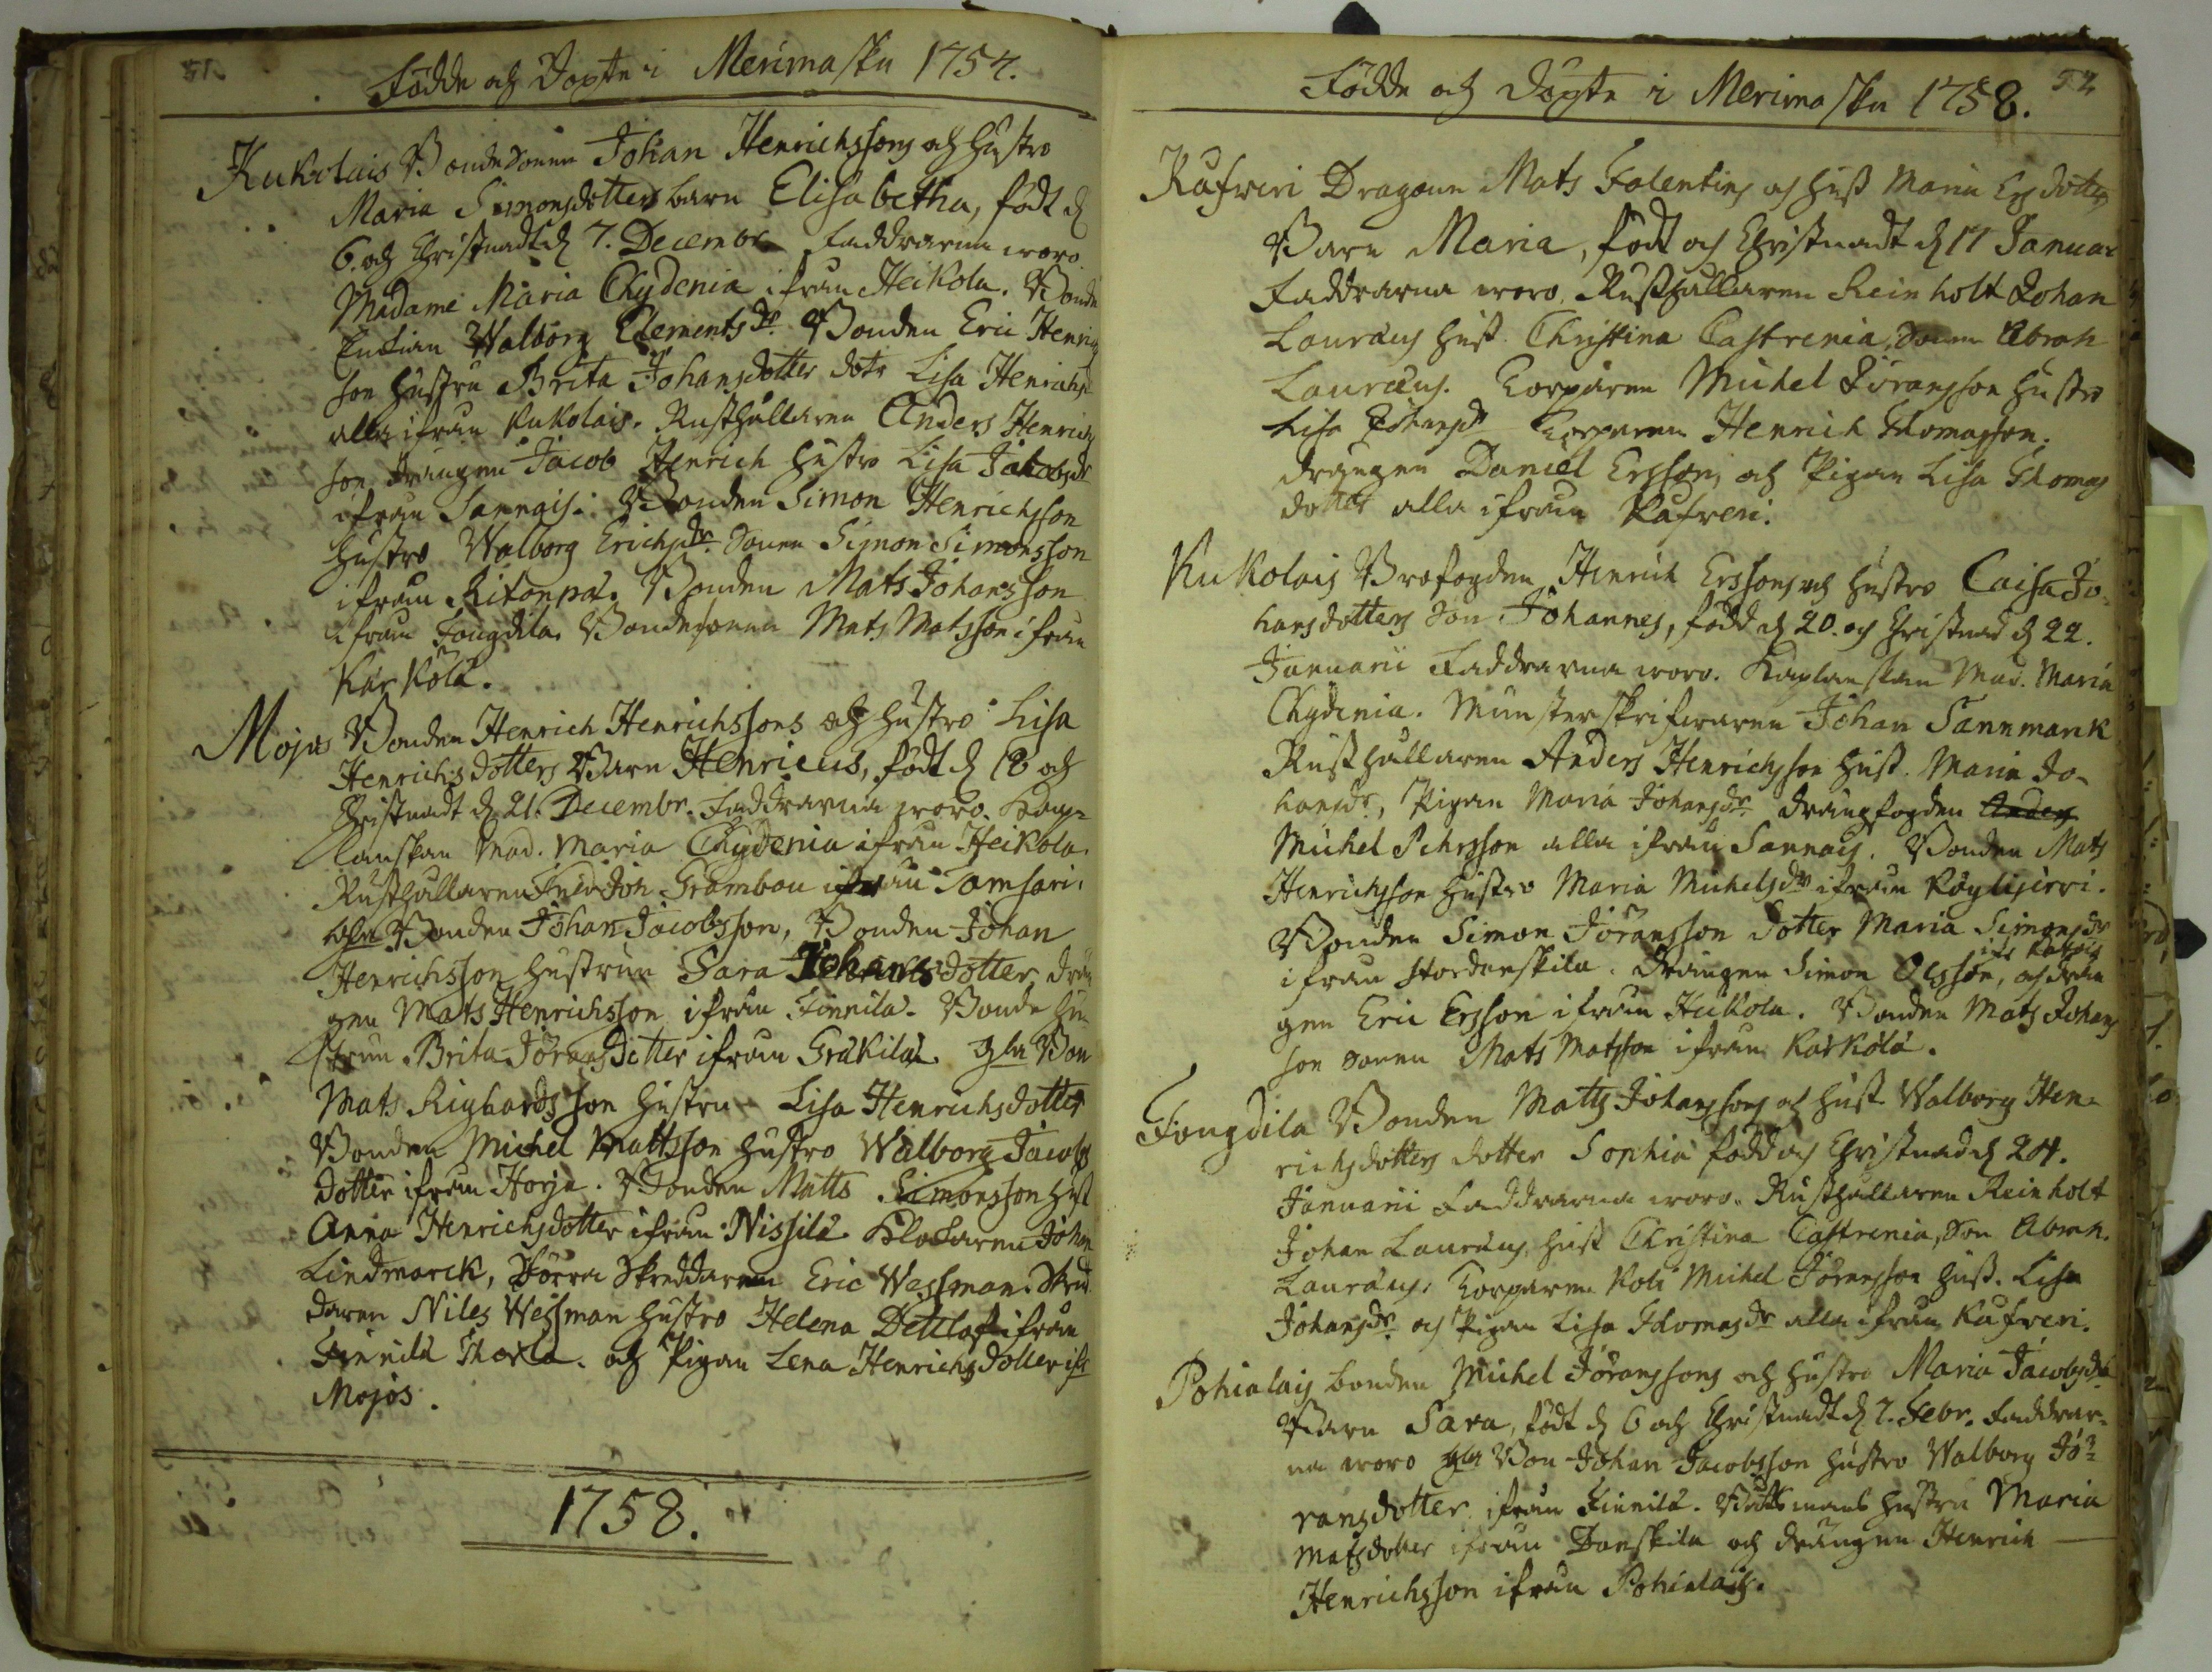 Födde och Döpte i Merimasku 1757.
Kukolais Bondesonen Johan Henrichssons och hustro
Maria Simonsdotters barn Elisabetha, födt d
6. och Christnadt d 7. Decembr. Faddrarna woro
Madame Maria Chydenia ifrån Heikola. Bonde
Enkian Walborg Clements dr Bonden Eric Henrichs
son hustru Brita Johansdotter dotr Lisa Henrichs
alla ifrån Kukolais. Rusthållaren Anders Henrichs
son, drängen Jacob Henrich hustro Lisa Jakobsdr
ifrån Sannais. Bonden Simon Henrichsson
hustro Walborg Erichsdr. Sonen Simon Simonsson
ifrån Ritonpä. Bonden Mats Johansson
ifrån Fougdila. Bondesonen Mats Matsson ifrån
Karkölä.
Mojos Bonden Henrich Henrichssons och hustro Lisa
Henrichsdotters Barn Henricus, födt d 18 och
Christnadt d 21. Decembr. Faddrarna woro. Kap-
lanskan Mad. Maria Chydenia ifrån Heikola.
Rusthållaren Joh Grambou ifrån Samsari.
Bonden Johan Jacobsson, Bonden Johan
Henrichsson hustrun Sara Johansdotter, drän
gen Mats Henrichsson ifrån Finnilä. Bonde hu-
strun Brita Jöransdotter ifrån Gräkilä. gla Bon
Mats Righardsson hustru Lisa Henrichsdotter
Bonden Michel Mattsson hustro Walborg Jacobs
dotter ifrån Horja. Bonden Matts Simonsson hust
Anna Henrichsdotter ifrån Nissilä. Klokaren Johan
Lindmarck, Sörra Skreddaren Eric Wessman. Skred
daren Niles Wessman hustro Helena Dettlof ifrån
Finnilä Thorla. och Pigan Lena Henrichsdotter ifr
Mojos.
1758.
Födde och Döpte i Merimasku 1758. 52
Kafreri Dragoun Mats Falentins och hust Maria Ersdotters
Barn Maria, födt och Christnadt d 17 Januar
Faddrarna woro. Rusthållaren Reinholt Johan
Lauræus hust. Christina Castrenia, Sonen Abrah
Lauræus. Torparen Michel Jöransson hustro
Lisa Johansdr Torparen Henrich Thomasson.
drängen Daniel Ersson, och Pigan Lisa Thomas
dotter alla ifrån Kafreri.
Kukolais Brofogden Henrich Erssons och hustro Caisa Jo-
hansdotters Son Johannes, född d 20. och Christnad d 22.
Januarii Faddrarna woro. Kaplanskan Mad. Maria
Chydenia. Münsterskrifwaren Johan Sannmark
Rusthållaren Anders Henrichsson hust. Maria Jo-
hansdr, Pigan Maria Johansdr drängfogden Anders
Michel Pehrsson alla ifrån Sannais. Bonden Mats
Henrichsson hustro Maria Michelsdr ifrån Köylijervi.
Bonden Simon Jöransson dotter Maria Simonsdr
ifrån Stordanskila. drängen Simon Olsson, och drän
gen Eric Ersson ifrån Heikola. Bonden Mats Johans
son sonen Mats Matsson ifrån Karkölä.
Fougdila Bonden Matts Johanssons och hust Walborg Hen-
richsdotters dotter Sophia född och Christnad d 24.
Januarii Faddrarna woro. Rusthållaren Reinholt
Johan Lauræus, hust Christina Castrenia, Son Abrah.
Lauræus. Torparen Michel Jöransson hust. Lisa
Johansdr och Pigan Lisa Thomasdr alla ifrån Kafreri.
Pohialais bonden Michel Jöranssons och hustro Maria Jacobsdr
Barn Sara, födt d 6 och Christnadt d 7. Febr. Faddrar-
na woro gla Bon Johan Jacobsson hustro Walborg Jö-
ransdotter ifrån Finnilä. Båttsmans hustru Maria
Matsdotter ifrån Danskila och drängen Henrich
Henrichsson ifrån Pohialais.